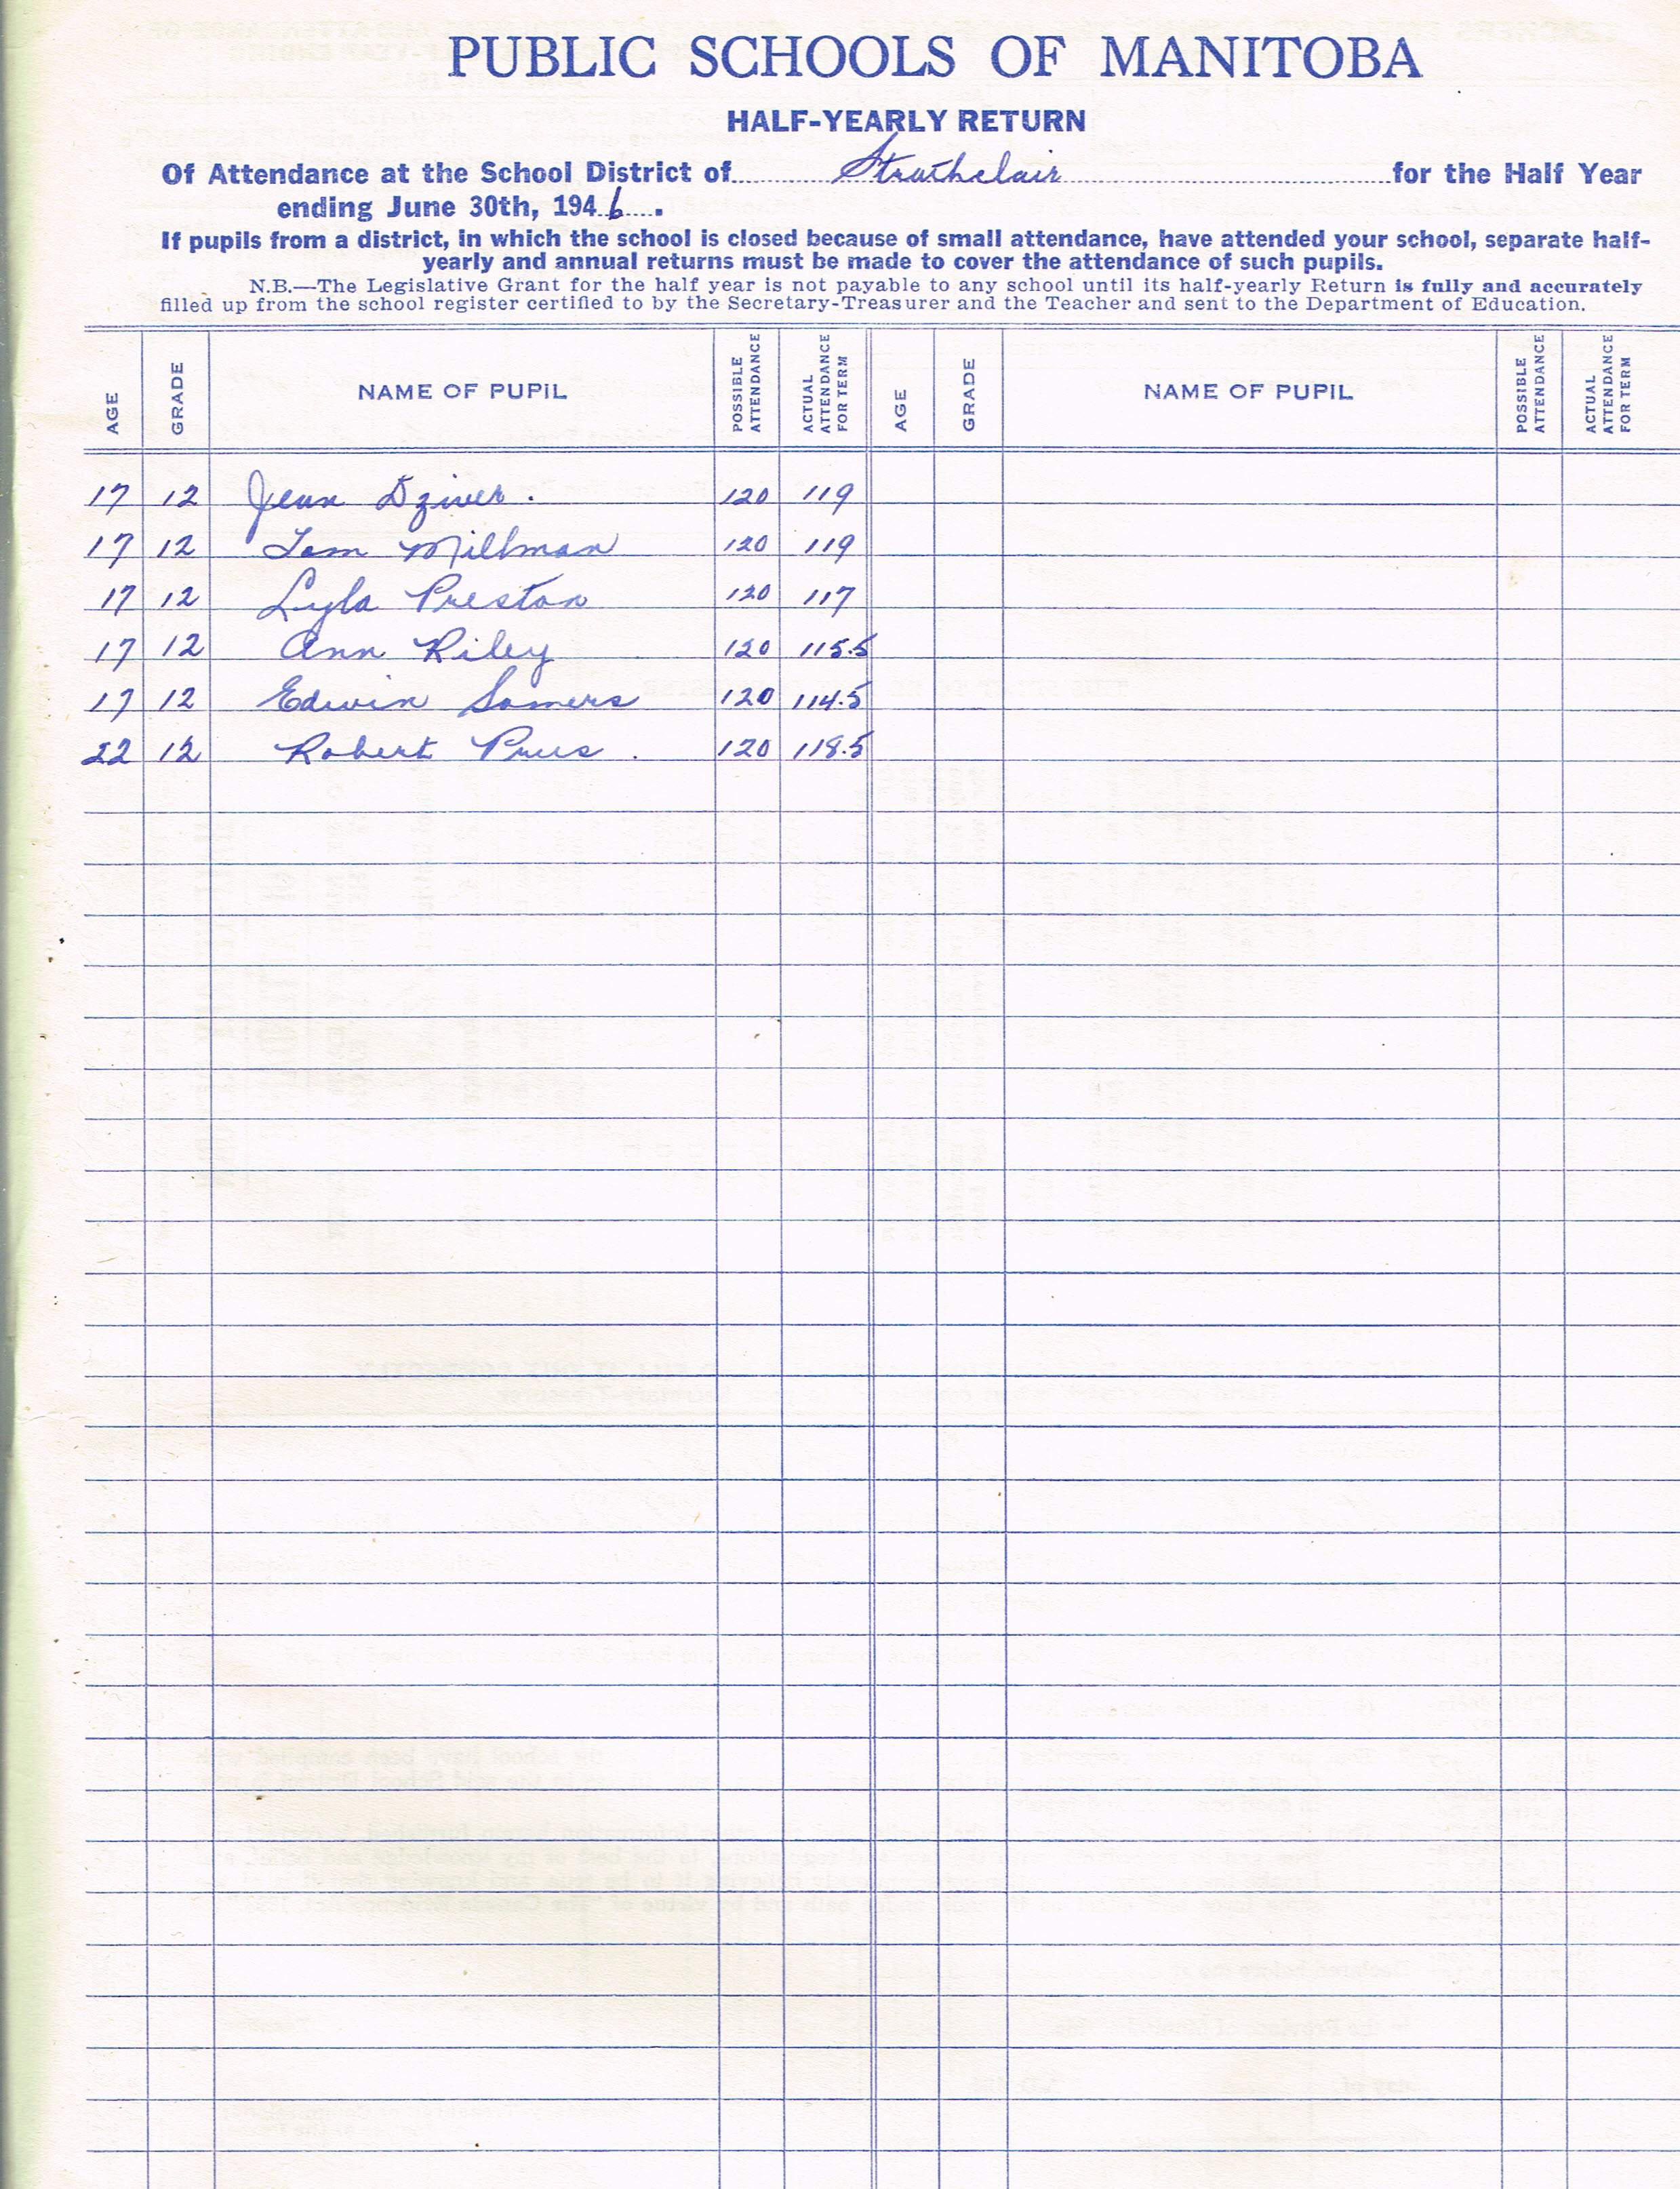 PUBLIC SCHOOLS OF MANITOBA
HALF-YEARLY RETURN
Of Attendance at the School District of Strathclair for the Half Year
ending June 30th, 1946.
If pupils from a district, in which the school is closed because of small attendance, have attended your school, separate half-
yearly and annual returns must be made to cover the attendance of such pupils.
N.B.—The Legislative Grant for the half year is not payable to any school until its half-yearly Return is fully and accurately
filled up from the school register certified to by the Secretary-Treasurer and the Teacher and sent to the Department of Education.
AGE GRADE NAME OF PUPIL POSSIBLE ATTENDANCE ACTUAL ATTENDANCE FOR TERM AGE GRADE NAME OF PUPIL POSSIBLE ATTENDANCE ACTUAL ATTENDANCE FOR TERM
17 12 Jean Dziver. 120 119
17 12 Tom Millman 120 119
17 12 Lyla Preston 120 117
17 12 Ann Riley 120 115.5
17 12 Edwin Somers 120 114.5
22 12 Robert Prus. 120 118.5